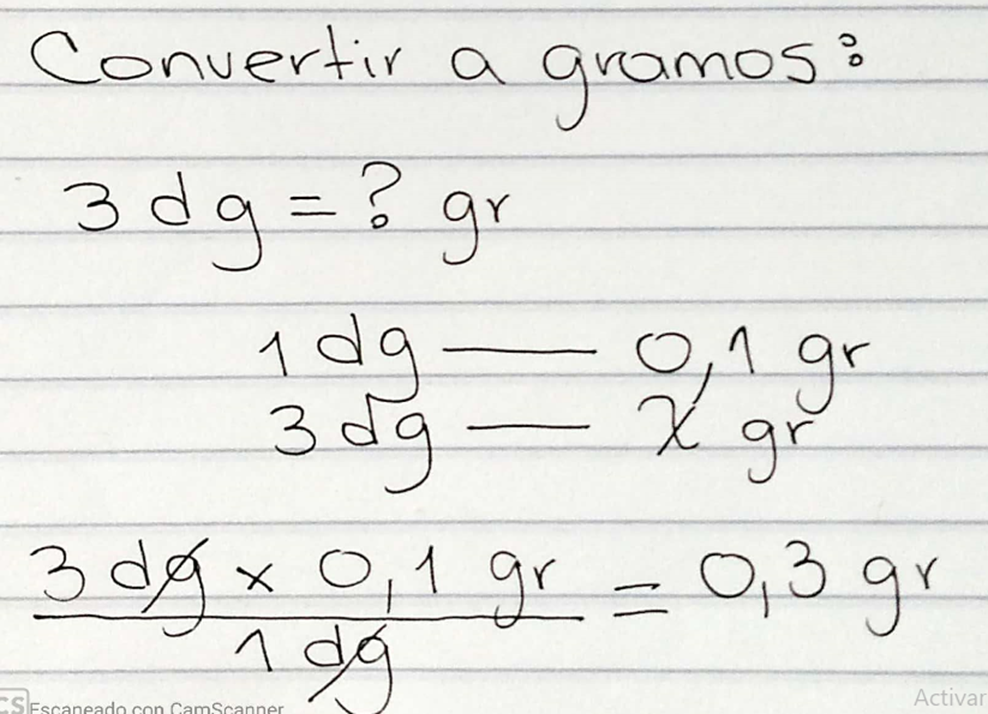 Convertir a gramos:
3 dg = ? gr
1 dg — 0,1 gr
3 dg — x gr
3 dg x 0,1 gr = 0,3 gr
1 dg
CS Escaneado con CamScanner
Activar